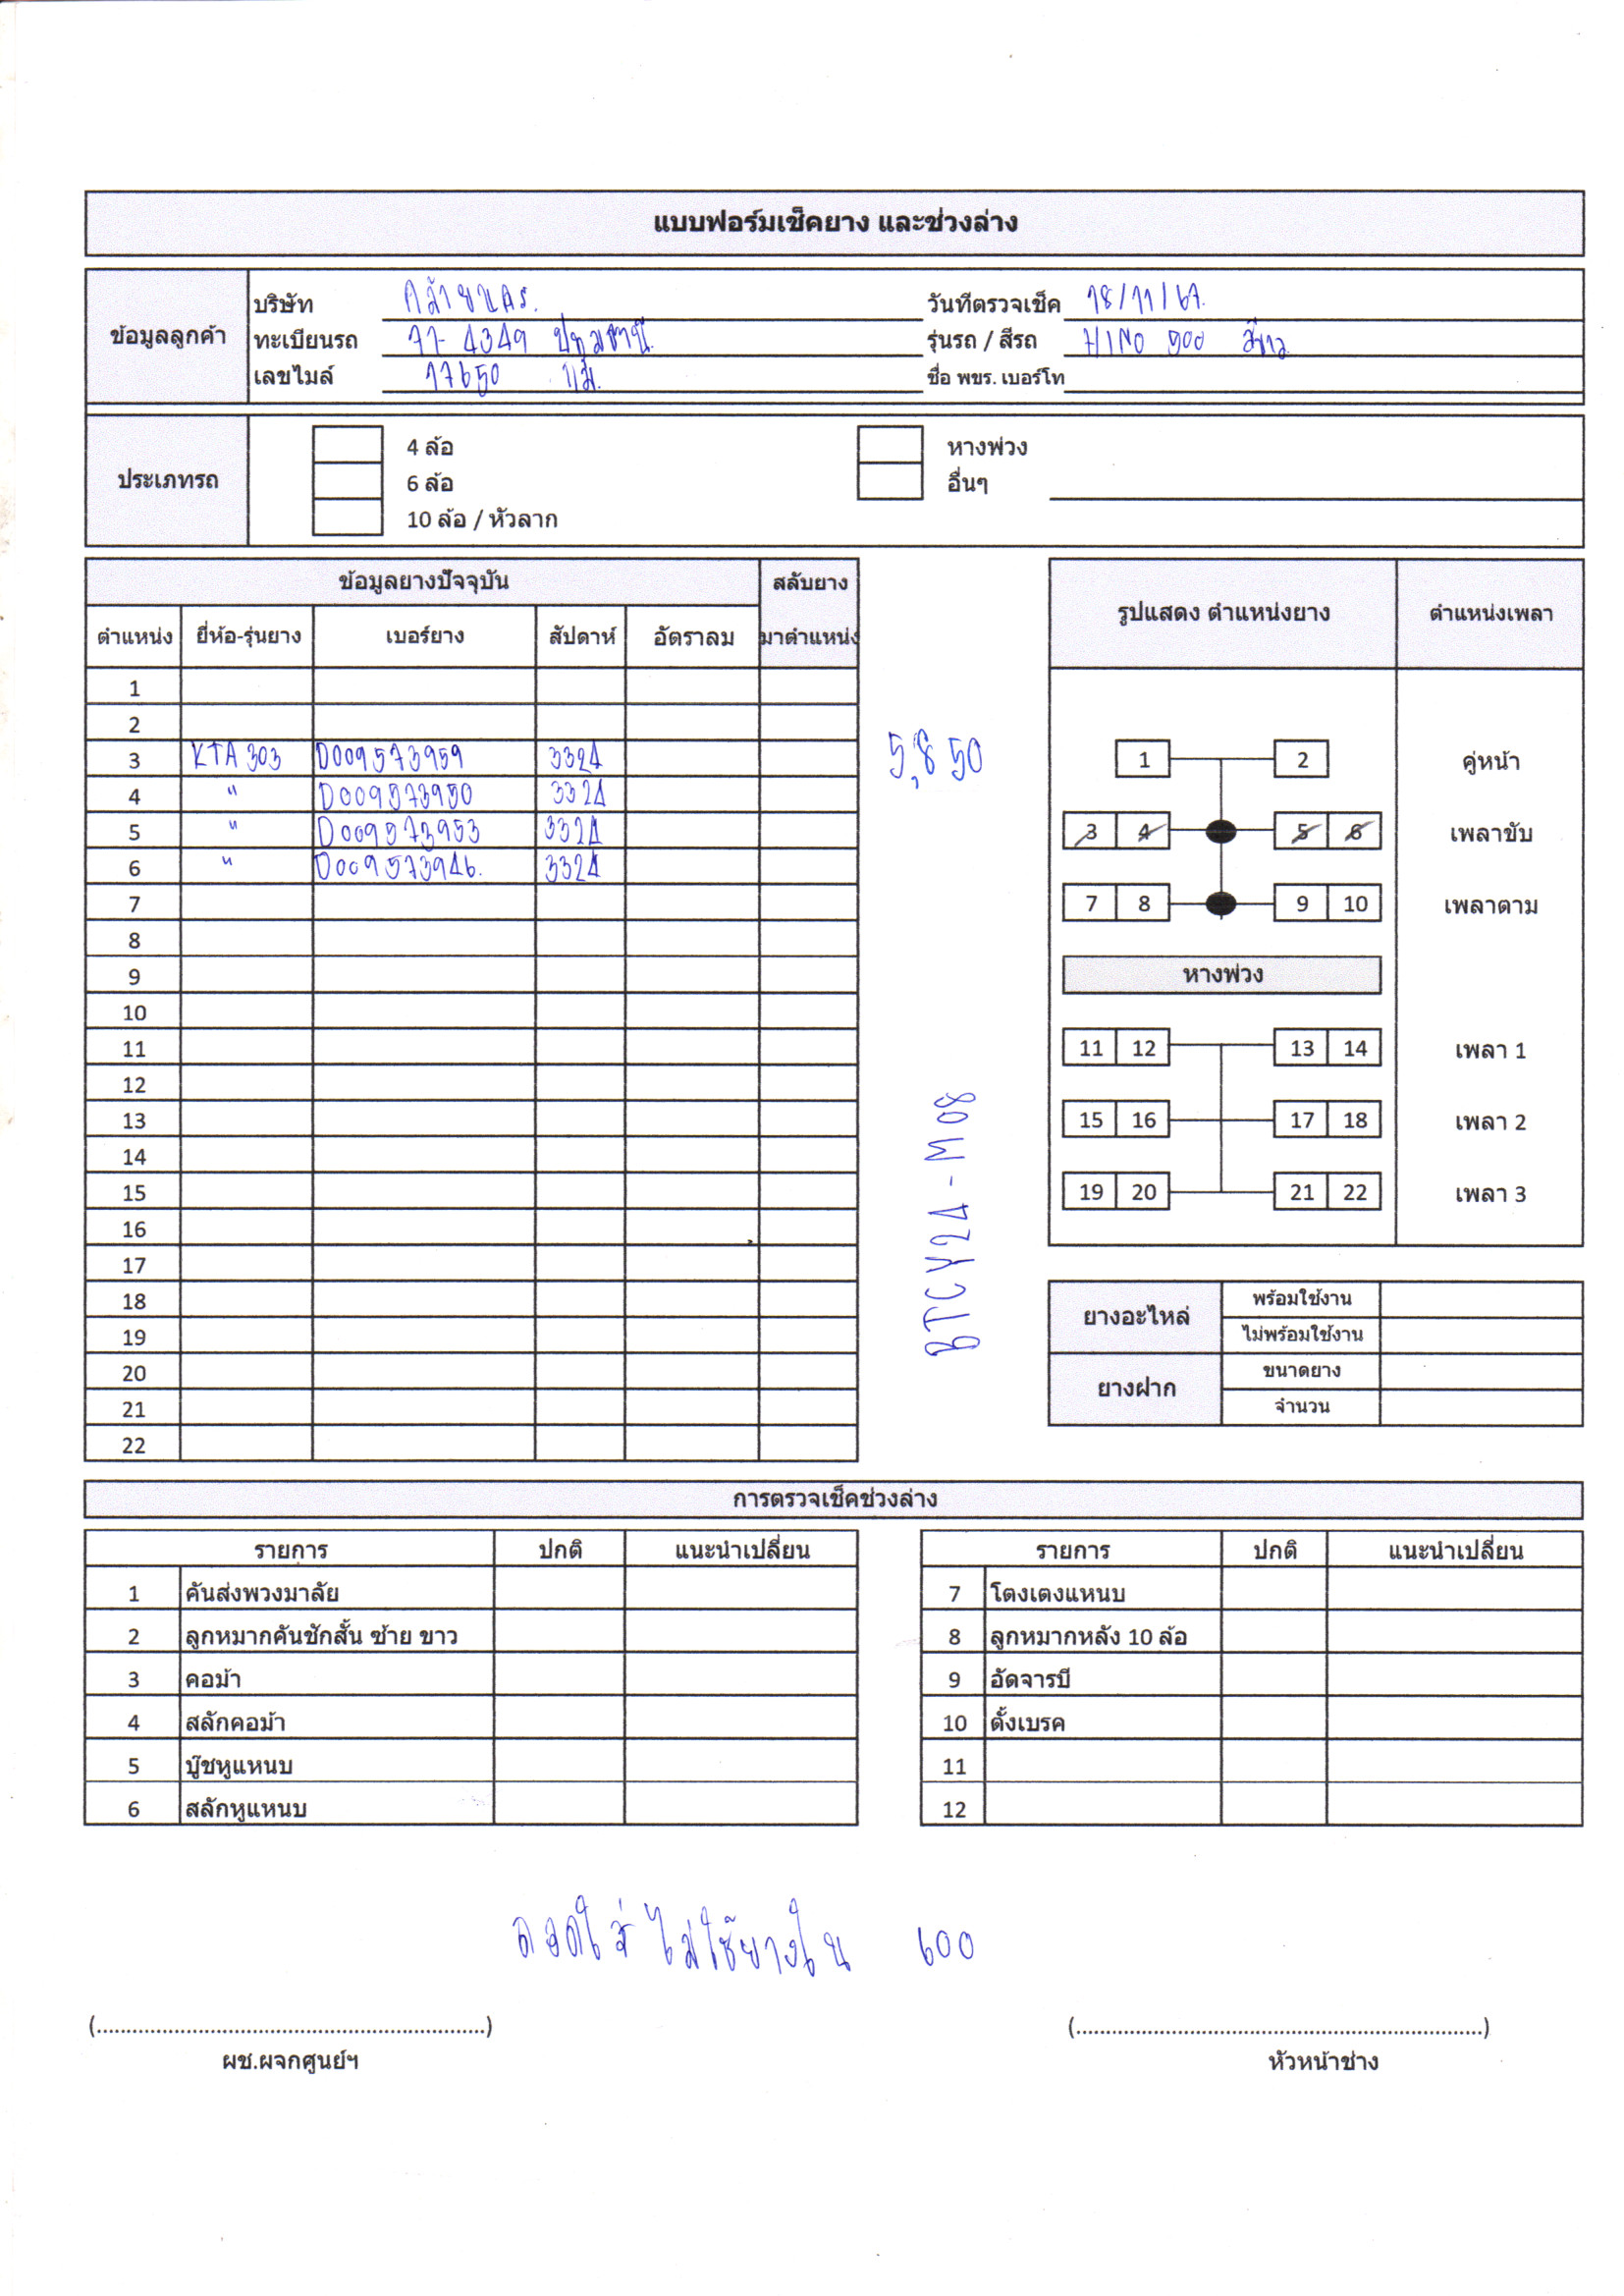 แบบฟอร์มเช็คยาง และช่วงล่าง
ข้อมูลลูกค้า
บริษัท คล้ายนคร. วันที่ตรวจเช็ค 18/11/67.
ทะเบียนรถ 77-4349 ปทุมธานี รุ่นรถ / สีรถ HINO 500 สีขาว
เลขไมล์ 17650 ชื่อ พขร. เบอร์โท
ประเภทรถ
4 ล้อ หางพ่วง
6 ล้อ อื่นๆ
10 ล้อ / หัวลาก
ข้อมูลยางปัจจุบัน สลับยาง
ตำแหน่ง ยี่ห้อ-รุ่นยาง เบอร์ยาง สัปดาห์ อัตราลม มาตำแหน่ง
1
2
3 KTA 303 D009573959 3324
4 " D009573950 3324
5 " D009573953 3324
6 " D009573946. 3324
7
8
9
10
11
12
13
14
15
16
17
18
19
20
21
22
5,850
BTCY24-M08
รูปแสดง ตำแหน่งยาง ตำแหน่งเพลา
1 2 คู่หน้า
3 4 5 6 เพลาขับ
7 8 9 10 เพลาตาม
หางพ่วง
11 12 13 14 เพลา 1
15 16 17 18 เพลา 2
19 20 21 22 เพลา 3
ยางอะไหล่ พร้อมใช้งาน
ไม่พร้อมใช้งาน
ยางฝาก ขนาดยาง
จำนวน
การตรวจเช็คช่วงล่าง
รายการ ปกติ แนะนำเปลี่ยน
1 คันส่งพวงมาลัย
2 ลูกหมากคันชักสั้น ซ้าย ขาว
3 คอม้า
4 สลักคอม้า
5 บู๊ชหูแหนบ
6 สลักหูแหนบ
รายการ ปกติ แนะนำเปลี่ยน
7 โตงเตงแหนบ
8 ลูกหมากหลัง 10 ล้อ
9 อัดจารบี
10 ตั้งเบรค
11
12
ถอดใส่ ไม่ใช้ยางใน 600
(................................................................) (....................................................................)
ผช.ผจกศูนย์ฯ หัวหน้าช่าง